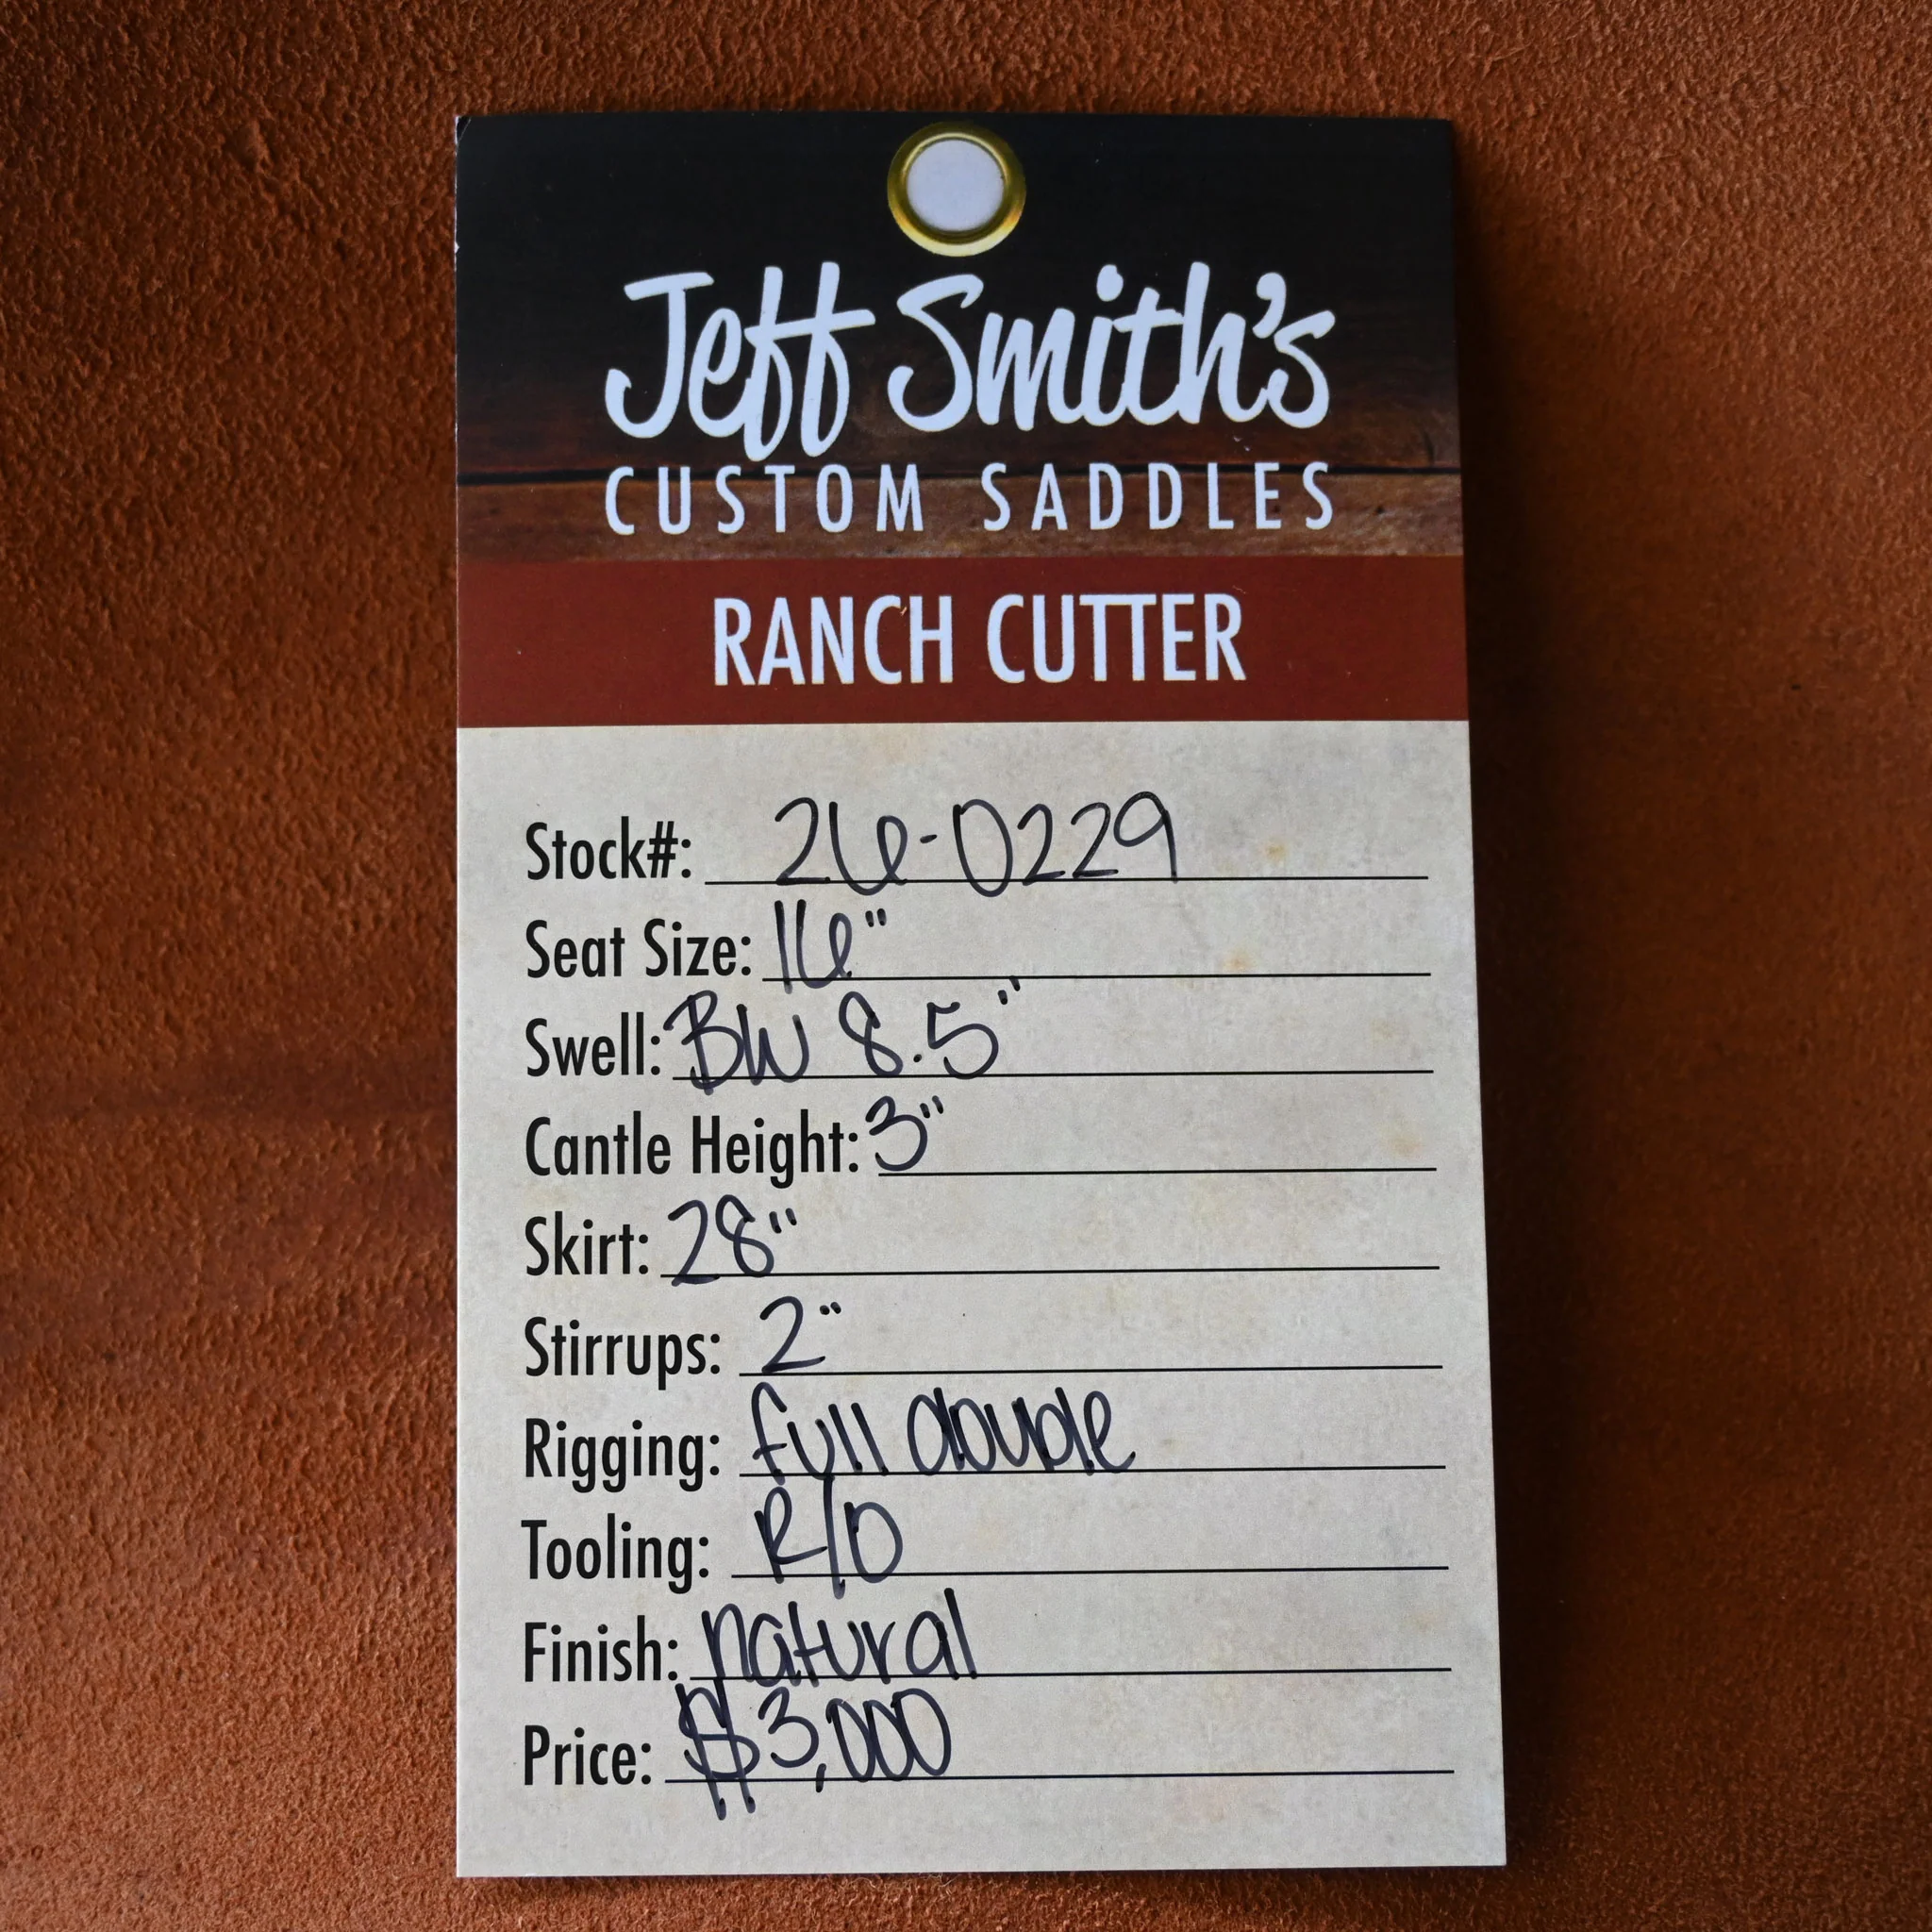 Jeff Smith's
CUSTOM SADDLES
RANCH CUTTER
Stock#: 26-0229
Seat Size: 16"
Swell: BW 8.5"
Cantle Height: 3"
Skirt: 28"
Stirrups: 2"
Rigging: full double
Tooling: R/O
Finish: natural
Price: $3,000